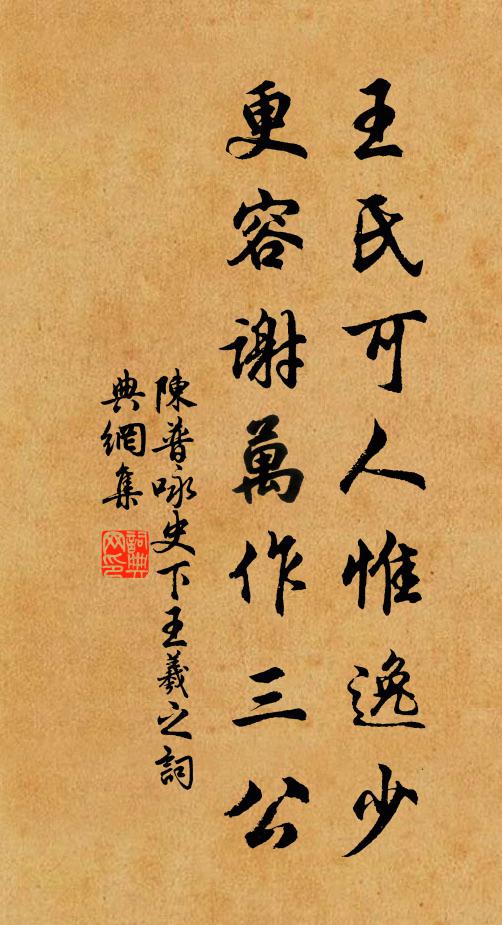 王氏可人惟逸少
更容謝萬作三公
陳普咏史下王羲之詞
典網集
詞典網印